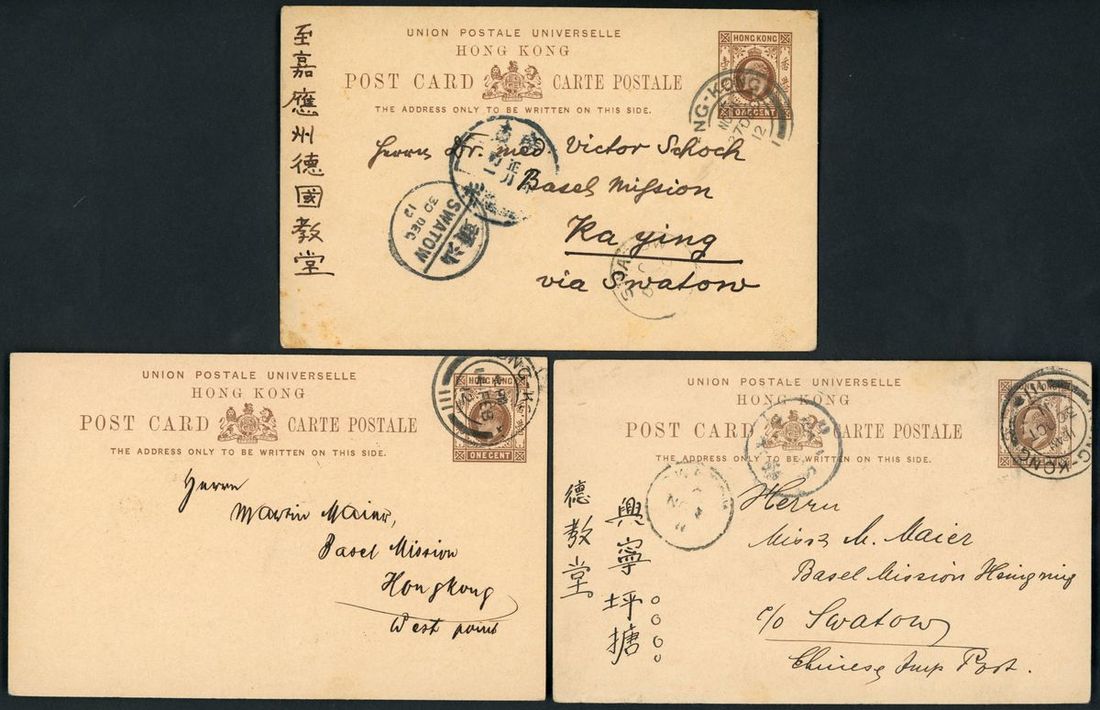 UNION POSTALE UNIVERSELLE
HONG KONG
POST CARD CARTE POSTALE
THE ADDRESS ONLY TO BE WRITTEN ON THIS SIDE.
HONG KONG
ONE CENT
至嘉應州德國教堂
Herrn Dr. med. Victor Schoch
Basel Mission
Ka ying
via Swatow
SWATOW
30 DEC
12
UNION POSTALE UNIVERSELLE
HONG KONG
POST CARD CARTE POSTALE
THE ADDRESS ONLY TO BE WRITTEN ON THIS SIDE.
HONG KONG
ONE CENT
Herrn
Martin Maier,
Basel Mission
Hongkong
West point
UNION POSTALE UNIVERSELLE
HONG KONG
POST CARD CARTE POSTALE
THE ADDRESS ONLY TO BE WRITTEN ON THIS SIDE.
ONE CENT
興寧坪搪
德教堂
Herrn
M. Maier
Basel Mission
c/o Swatow
Chinese Imp Post.